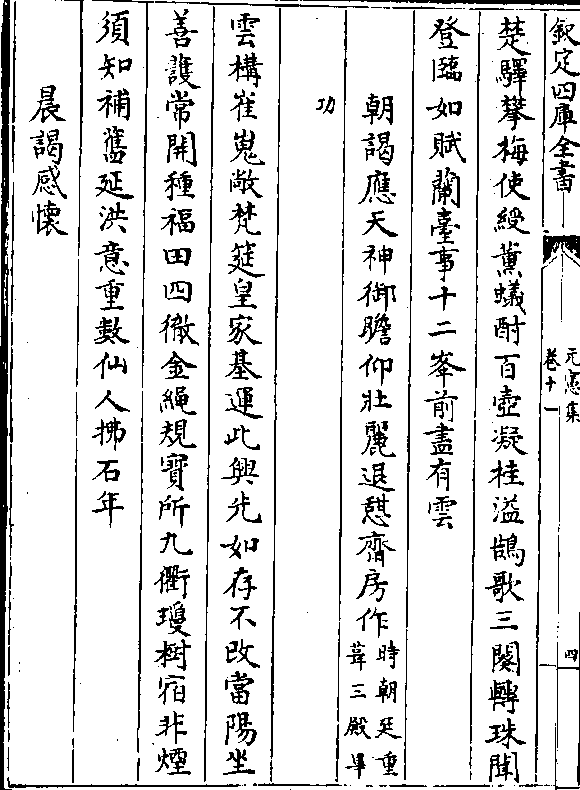 欽定四庫全書
元憲集
卷十一
四
楚驛攀梅使綬薰蟻酎百壺凝桂溢鵠歌三闋轉珠聞
登臨如賦蘭臺事十二峯前盡有雲
朝謁應天神御瞻仰壯麗退憩齋房作時朝廷重葺三殿畢
功
雲構崔嵬敞梵筵皇家基運此興先如存不改當陽坐
善護常開種福田四徼金繩規寳所九衢瓊樹宿非煙
須知補舊延洪意重數仙人拂石年
晨謁感懷